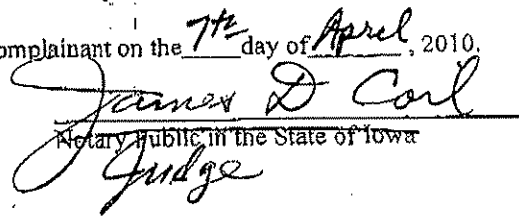 omplainant on the 7th day of April, 2010.
James D Coil
Notary Public in the State of Iowa
Judge